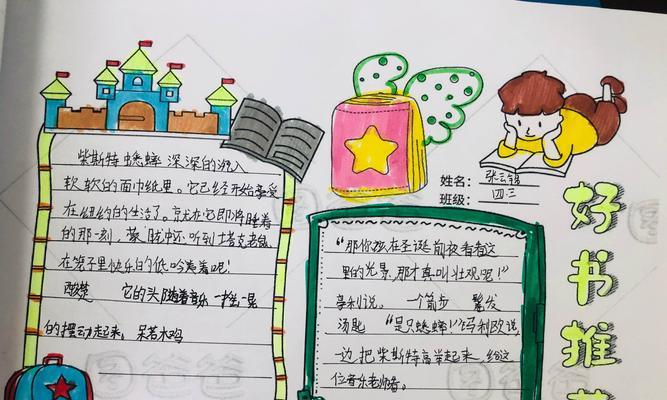 柴斯特 蟋蟀 深深的沉入
软软的面巾纸里。它已经开始享受
在纽约的生活了。就在它即将睡着
的那一刻，朦胧中还听到塔克老鼠
在笼子里快乐的低吟着呢！
酸楚 它的头随着音乐一摇一晃
的摆动起来，呆若木鸡
姓名：张云锦
班级：四.三
“那你应在圣诞前夜看看这
里的光景，那才真叫壮观呢！”
亨利说。 一个箭步 鬈发
汤匙 “是只蟋蟀！”玛利欧说，
边把柴斯特高举起来给这
位音乐老师看。
好书推荐